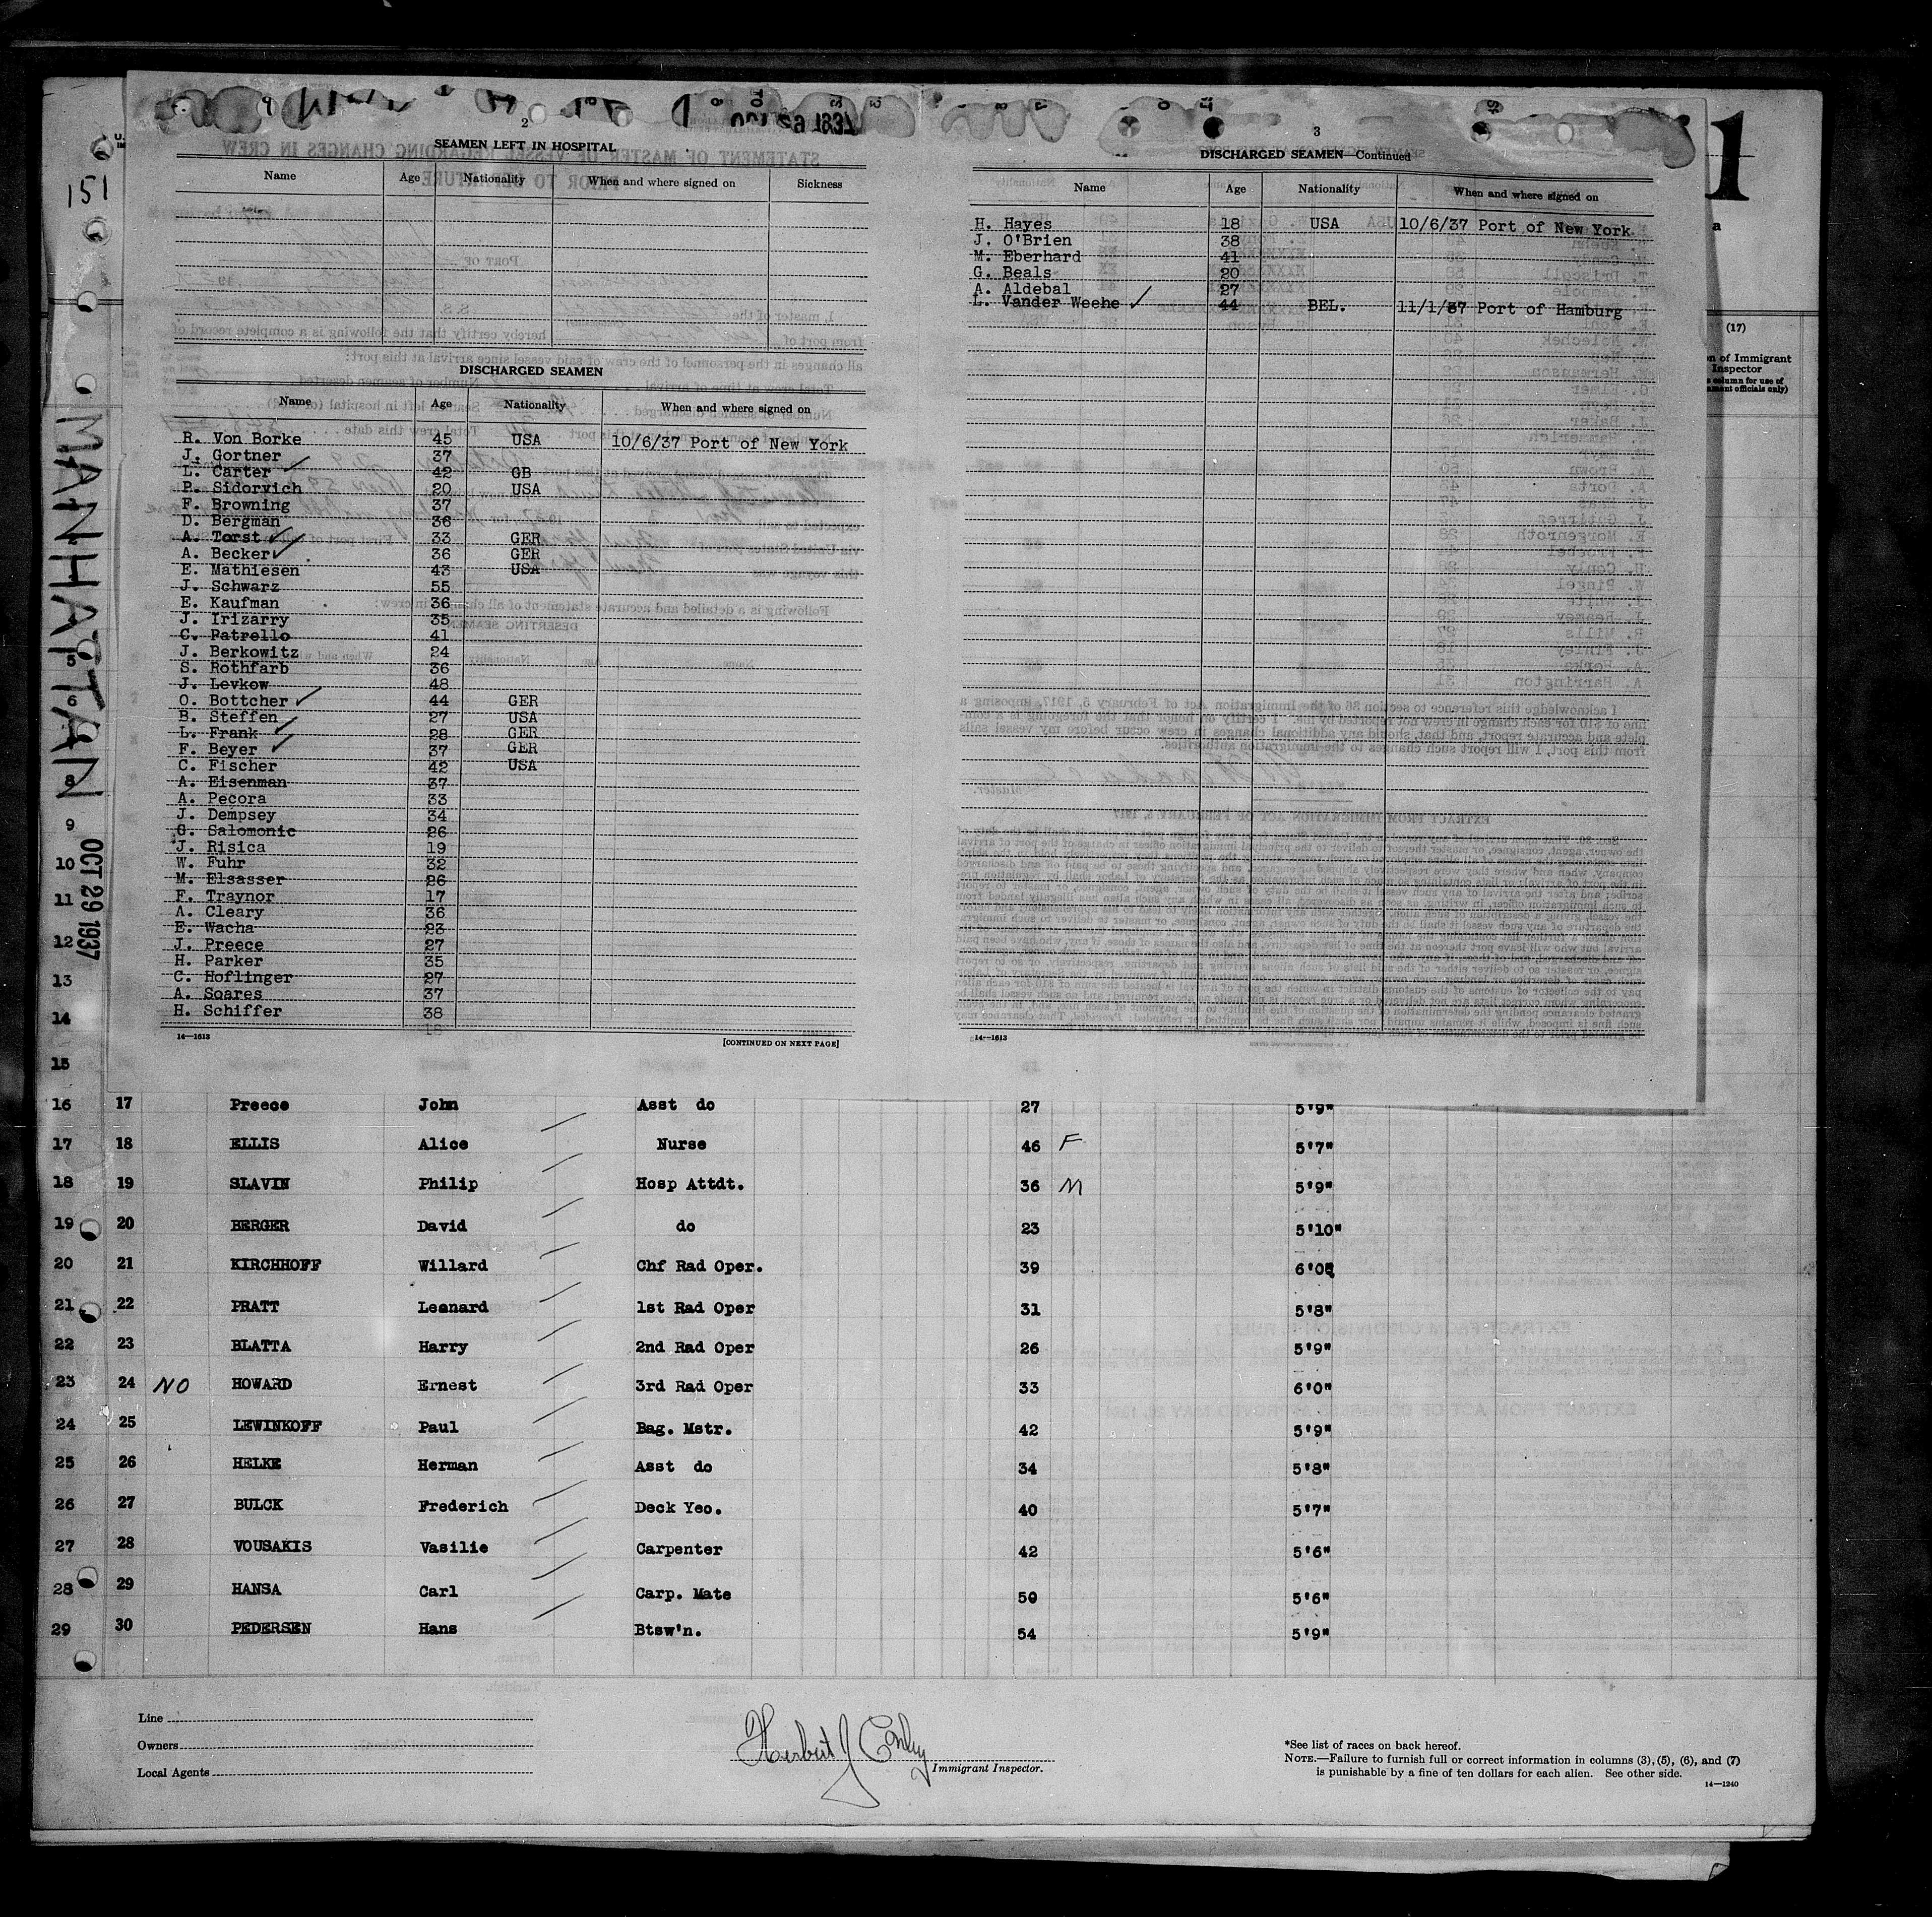 151
MANHATTAN
OCT 29 1937
1
2
SEAMEN LEFT IN HOSPITAL
Name Age Nationality When and where signed on Sickness
DISCHARGED SEAMEN
Name Age Nationality When and where signed on
R. Von Borke 45 USA 10/6/37 Port of New York
J. Gortner 37
L. Carter ✓ 42 GB
P. Sidorvich 20 USA
F. Browning 37
D. Bergman 36
A. Torst ✓ 33 GER
A. Becker ✓ 36 GER
E. Mathiesen 43 USA
J. Schwarz 55
E. Kaufman 36
J. Irizarry 35
C. Patrello 41
J. Berkowitz 24
S. Rothfarb 36
J. Levkow 48
O. Bottcher ✓ 44 GER
B. Steffen 27 USA
L. Frank ✓ 28 GER
F. Beyer ✓ 37 GER
C. Fischer 42 USA
A. Eisenman 37
A. Pecora 33
J. Dempsey 34
G. Salomonic 26
J. Risica 19
W. Fuhr 32
M. Elsasser 26
F. Traynor 17
A. Cleary 36
E. Wacha 23
J. Preece 27
H. Parker 35
C. Hoflinger 27
A. Soares 37
H. Schiffer 38
14—1613 [CONTINUED ON NEXT PAGE]
3
DISCHARGED SEAMEN—Continued
Name Age Nationality When and where signed on
H. Hayes 18 USA 10/6/37 Port of New York
J. O'Brien 38
M. Eberhard 41
G. Beals 20
A. Aldebal 27
L. Vander Weehe ✓ 44 BEL. 11/1/37 Port of Hamburg
14—1613
(17)
of Immigrant
Inspector
column for use of
officials only)
5
6
8
9
10
11
12
13
14
15
16 17 Preece John Asst do 27 5'9"
17 18 ELLIS Alice Nurse 46 F 5'7"
18 19 SLAVIN Philip Hosp Attdt. 36 M 5'9"
19 20 BERGER David do 23 5'10"
20 21 KIRCHHOFF Willard Chf Rad Oper. 39 6'0"
21 22 PRATT Leonard 1st Rad Oper 31 5'8"
22 23 BLATTA Harry 2nd Rad Oper 26 5'9"
23 24 NO HOWARD Ernest 3rd Rad Oper 33 6'0"
24 25 LEWINKOFF Paul Bag. Mstr. 42 5'9"
25 26 HELKE Herman Asst do 34 5'8"
26 27 BULCK Frederich Deck Yeo. 40 5'7"
27 28 VOUSAKIS Vasilie Carpenter 42 5'6"
28 29 HANSA Carl Carp. Mate 50 5'6"
29 30 PEDERSEN Hans Btsw'n. 54 5'9"
Line
Owners
Local Agents
Herbert J Conley
Immigrant Inspector.
*See list of races on back hereof.
NOTE.—Failure to furnish full or correct information in columns (3), (5), (6), and (7)
is punishable by a fine of ten dollars for each alien. See other side.
14—1240